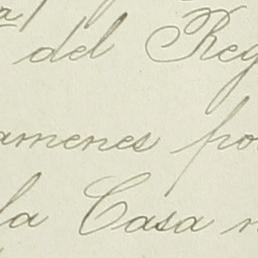 del Reg
amenes po
la Casa